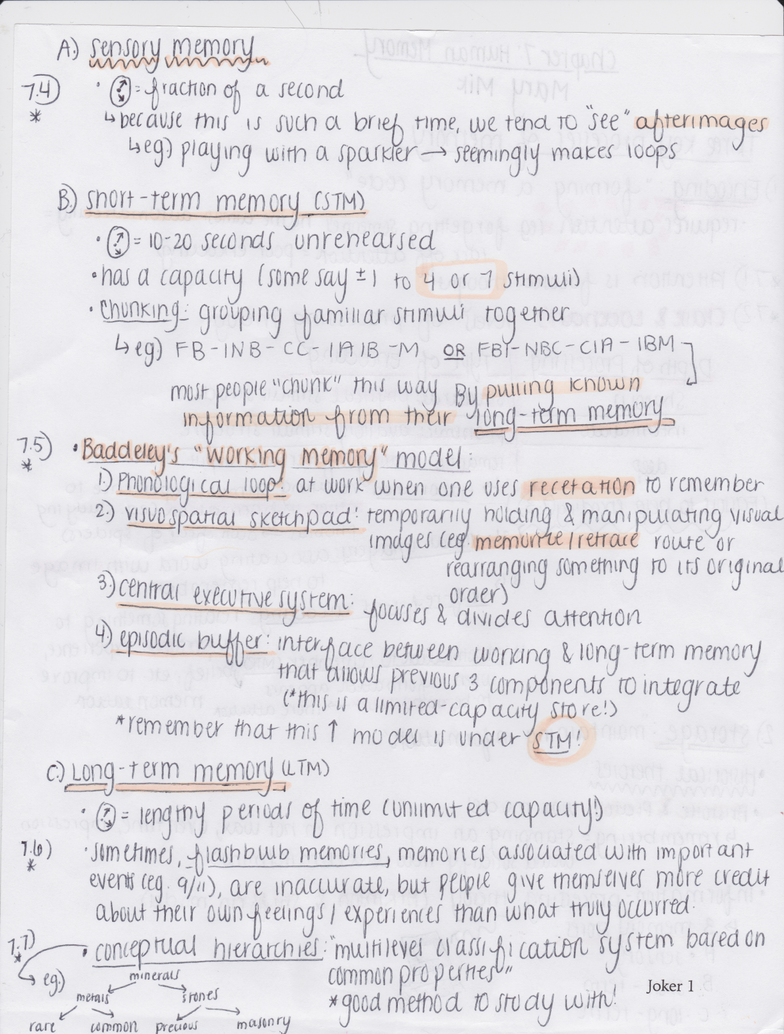 A) sensory memory
7.4) * • = fraction of a second
↳ because this is such a brief time, we tend to "see" afterimages
↳ eg) playing with a sparkler → seemingly makes loops
B) short-term memory (STM)
• = 10-20 seconds unrehearsed
• has a capacity (some say ±1 to 4 or 7 stimuli)
• Chunking: grouping familiar stimuli together
↳ eg) FB-INB-CC-IAIB-M OR FBI-NBC-CIA-IBM
most people "chunk" this way By pulling known
information from their long-term memory
7.5) * • Baddeley's "working memory" model:
1) Phonological loop: at work when one uses recetation to remember
2) visuospatial sketchpad: temporarily holding & manipulating visual
images (eg. memorize/retrace route or
rearranging something to its original
order)
3) central executive system: focuses & divides attention
4) episodic buffer: interface between working & long-term memory
that allows previous 3 components to integrate
(*this is a limited-capacity store!)
*remember that this ↑ model is under STM!
C.) Long-term memory (LTM)
• = lengthy periods of time (unlimited capacity!)
7.6) * • sometimes, flashbulb memories, memories associated with important
events (eg. 9/11), are inaccurate, but people give themselves more credit
about their own feelings/experiences than what truly occurred.
7.7) * • conceptual hierarchies: "multilevel classification system based on
common properties"
*good method to study with!
eg:
minerals
metals stones
rare common precious masonry
Joker 1